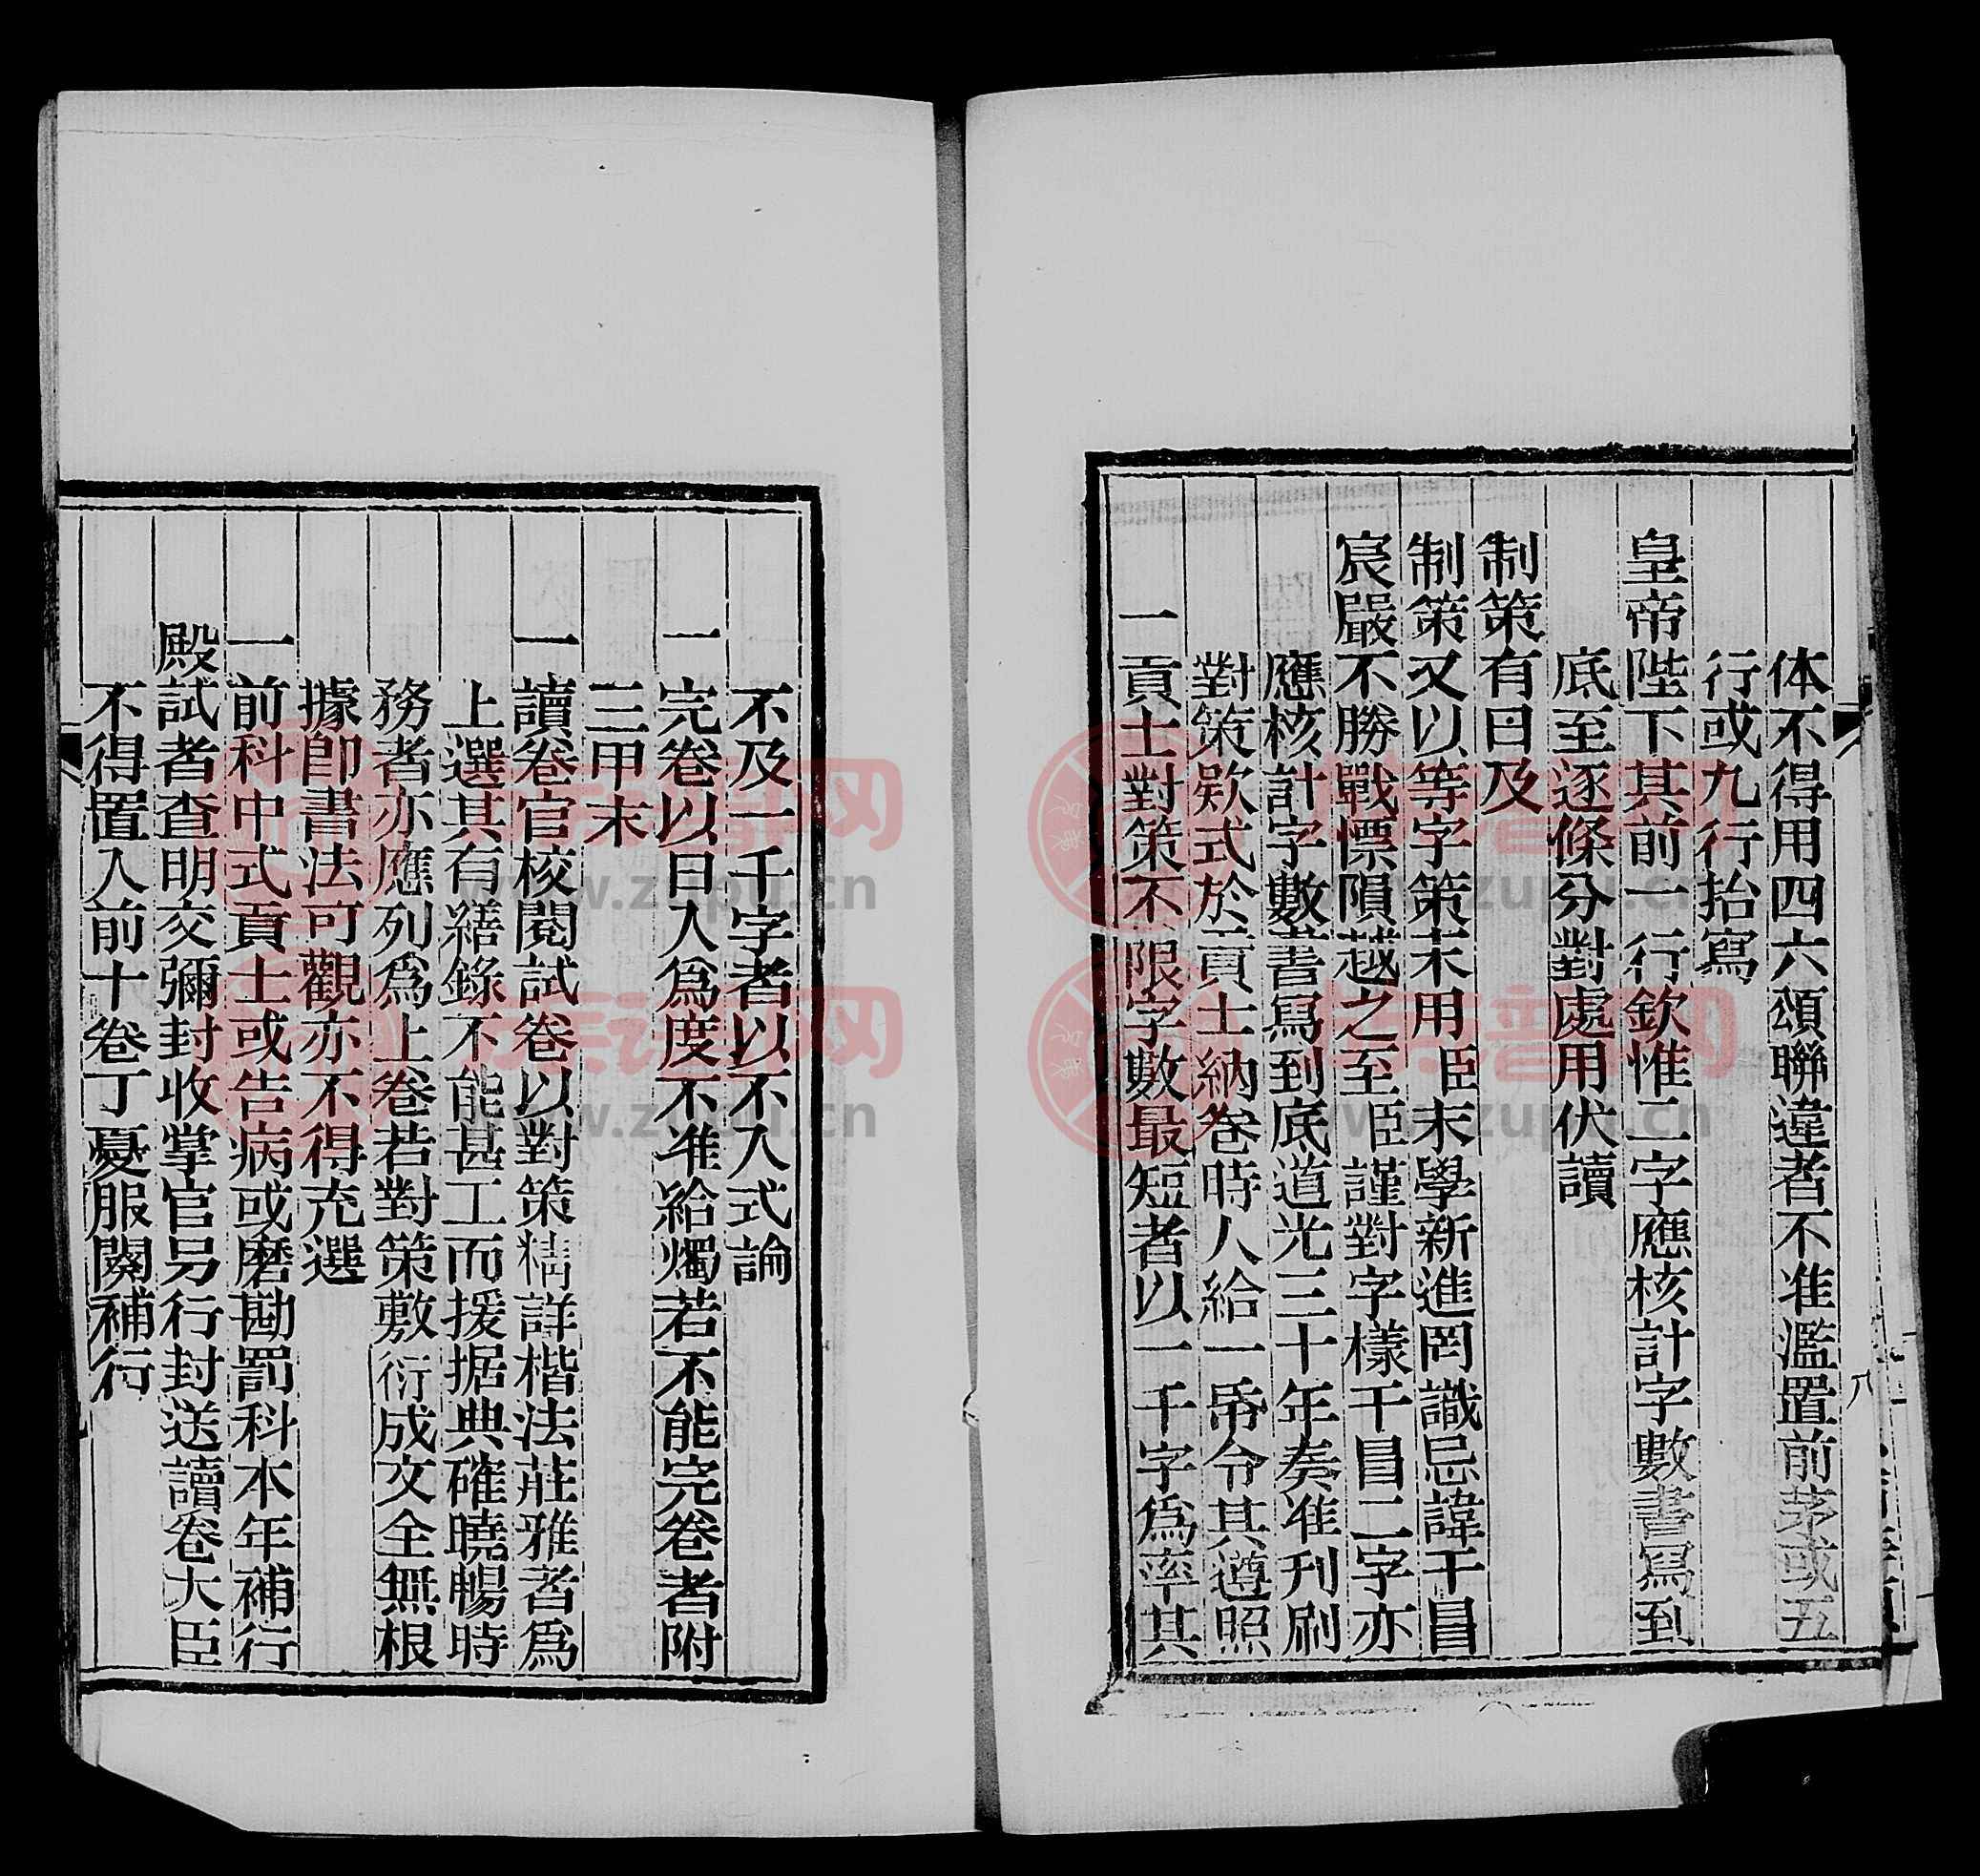 体不得用四六頌聯違者不准濫置前茅或五
行或九行抬寫
皇帝陛下其前一行欽惟二字應核計字數書寫到
底至逐條分對處用伏讀
制策有曰及
制策又以等字策末用臣末學新進罔識忌諱干冒
宸嚴不勝戰慄隕越之至臣謹對字樣干冒二字亦
應核計字數書寫到底道光三十年奏准刊刷
對策欵式於貢士納卷時人給一帋令其遵照
一貢士對策不限字數最短者以一千字為率其
不及一千字者以不入式論
一完卷以日入為度不准給燭若不能完卷者附
三甲末
一讀卷官校閱試卷以對策精詳楷法莊雅者為
上選其有繕錄不能甚工而援据典確曉暢時
務者亦應列為上卷若對策敷衍成文全無根
據卽書法可觀亦不得充選
一前科中式貢士或告病或磨勘罰科本年補行
殿試者查明交彌封收掌官另行封送讀卷大臣
不得置入前十卷丁憂服闋補行
八
族谱网
www.zupu.cn
族谱网
www.zupu.cn
族谱网
www.zupu.cn
族谱网
www.zupu.cn